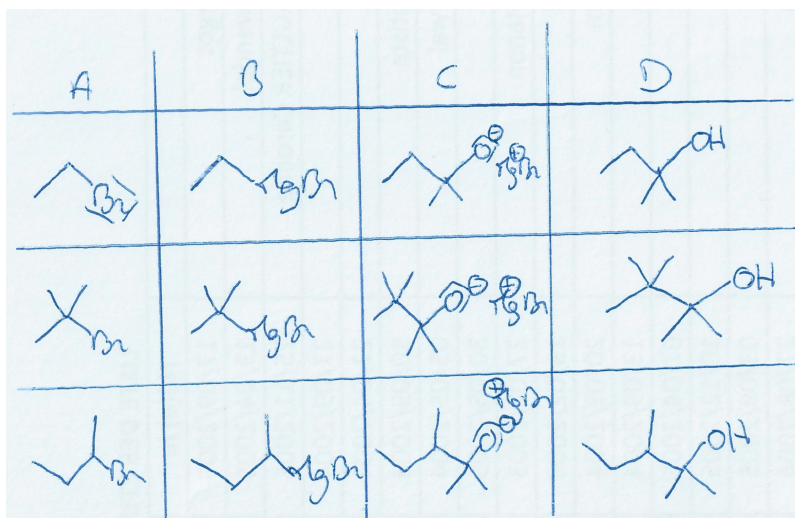 A B C D
Br MgBr O⊖ ⊕MgBr OH
Br MgBr O⊖ ⊕MgBr OH
⊕MgBr
Br MgBr O⊖ OH